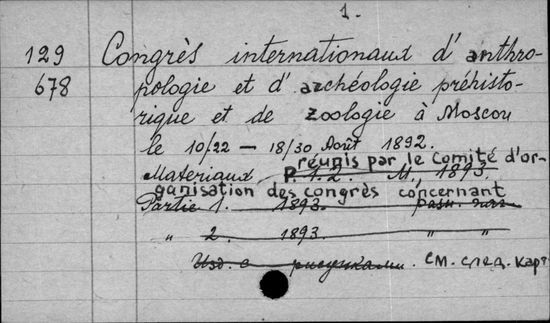 1.
129 Congrès internationaux d'anthro-
678 pologie et d'archéologie préhisto-
rique et de zoologie à Moscou
le 10/22 — 18/30 Août 1892.
réunis par le Comité d'or-
Materiaux P. 1. 2. М., 1893.
ganisation des congrès concernant
Partie 1. 1893. разн. паг.
„ 2. 1893. „ „
Изд. с рисунками. см. след. карт